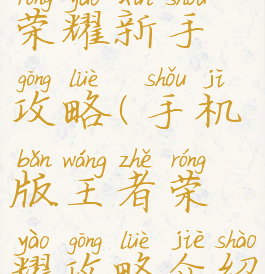 róng yào xīn shǒu
荣耀新手
gōng lüè shǒu jī
攻略(手机
bǎn wáng zhě róng
版王者荣
yào gōng lüè jiè shào
耀攻略介绍